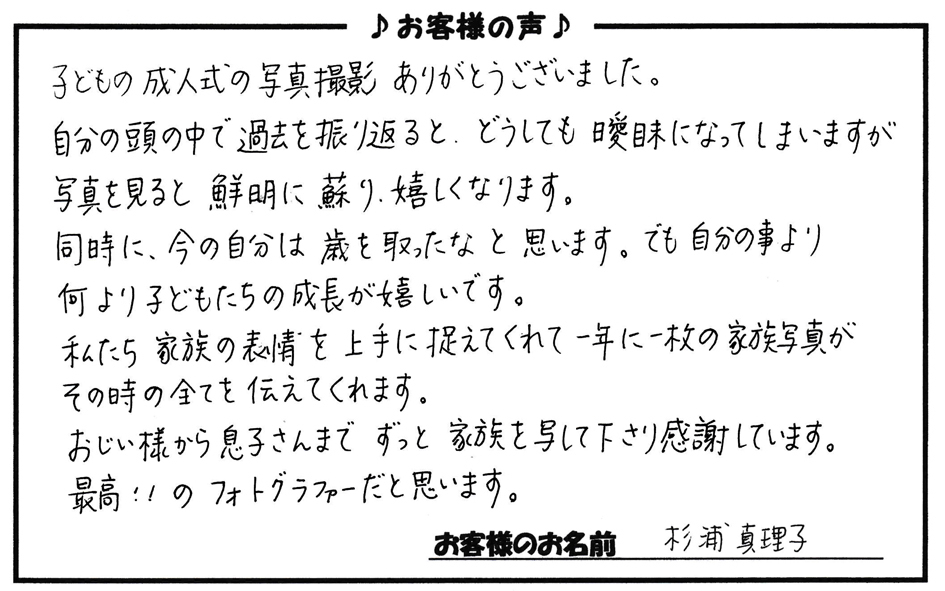 ♪お客様の声♪
子どもの成人式の写真撮影 ありがとうございました。
自分の頭の中で過去を振り返ると、どうしても曖昧になってしまいますが
写真を見ると 鮮明に 蘇り、嬉しくなります。
同時に、今の自分は 歳を取ったな と 思います。でも自分の事より
何より子どもたちの成長が嬉しいです。
私たち 家族の表情を上手に捉えてくれて一年に一枚の家族写真が
その時の全てを伝えてくれます。
おじい様から息子さんまで ずっと 家族を写して下さり感謝しています。
最高!!のフォトグラファーだと思います。
お客様のお名前 杉浦真理子